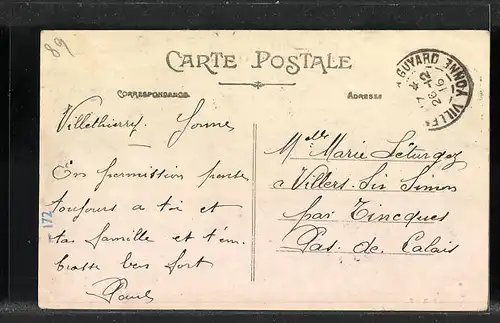 89
CARTE POSTALE
CORRESPONDANCE
ADRESSE
GUYARD YONNE
26 -12
Villethierry. Yonne
En permission pense
toujours a toi et
ta famille et t'em
brasse ben fort
Paul
172
Melle Marie Leturgez
a Villers. Sir Simon
par Tincques
Pas. de. Calais